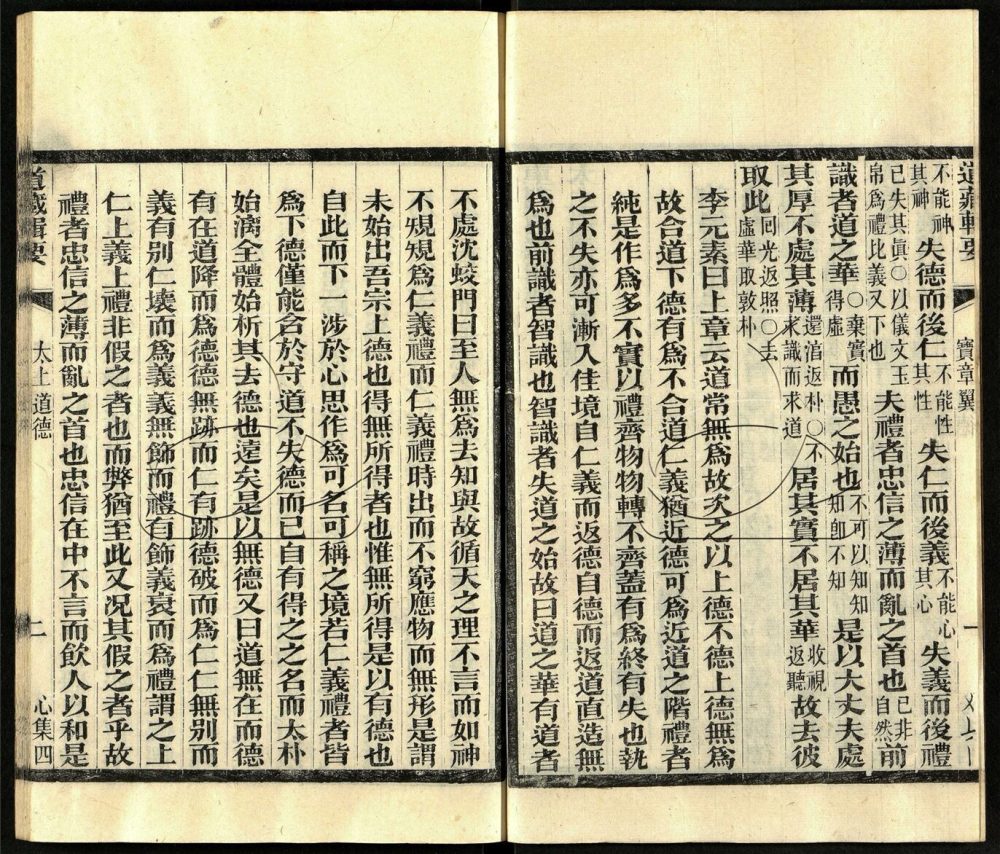 道藏輯要 寶章翼 一
不能神其神 失德而後仁 不能性其性 失仁而後義 不能心其心 失義而後禮
已失其眞○以儀文玉帛爲禮比義又下也 夫禮者忠信之薄而亂之首也 已非自然 前
識者道之華 ○棄實得虛 而愚之始也 不可以知知知卽不知 是以大丈夫處
其厚不處其薄 還湻返朴○不求識而求道 居其實不居其華 收視返聽 故去彼
取此 回光返照○去虛華取敦朴
李元素曰上章云道常無爲故次之以上德不德上德無爲
故合道下德有爲不合道仁義猶近德可爲近道之階禮者
純是作爲多不實以禮齊物物轉不齊蓋有爲終有失也執
之不失亦可漸入佳境自仁義而返德自德而返道直造無
爲也前識者智識也智識者失道之始故曰道之華有道者
不處沈蛟門曰至人無爲去知與故循天之理不言而如神
不規規爲仁義禮而仁義禮時出而不窮應物而無形是謂
未始出吾宗上德也得無所得者也惟無所得是以有德也
自此而下一涉於心思作爲可名可稱之境若仁義禮者皆
爲下德僅能含於守道不失德而已自有得之之名而太朴
始漓全體始析其去德也遠矣是以無德又曰道無在而德
有在道降而爲德德無跡而仁有跡德破而爲仁仁無別而
義有別仁壞而爲義義無飾而禮有飾義衰而爲禮謂之上
仁上義上禮非假之者也而弊猶至此又况其假之者乎故
禮者忠信之薄而亂之首也忠信在中不言而飲人以和是
道藏輯要 太上道德 二 心集四